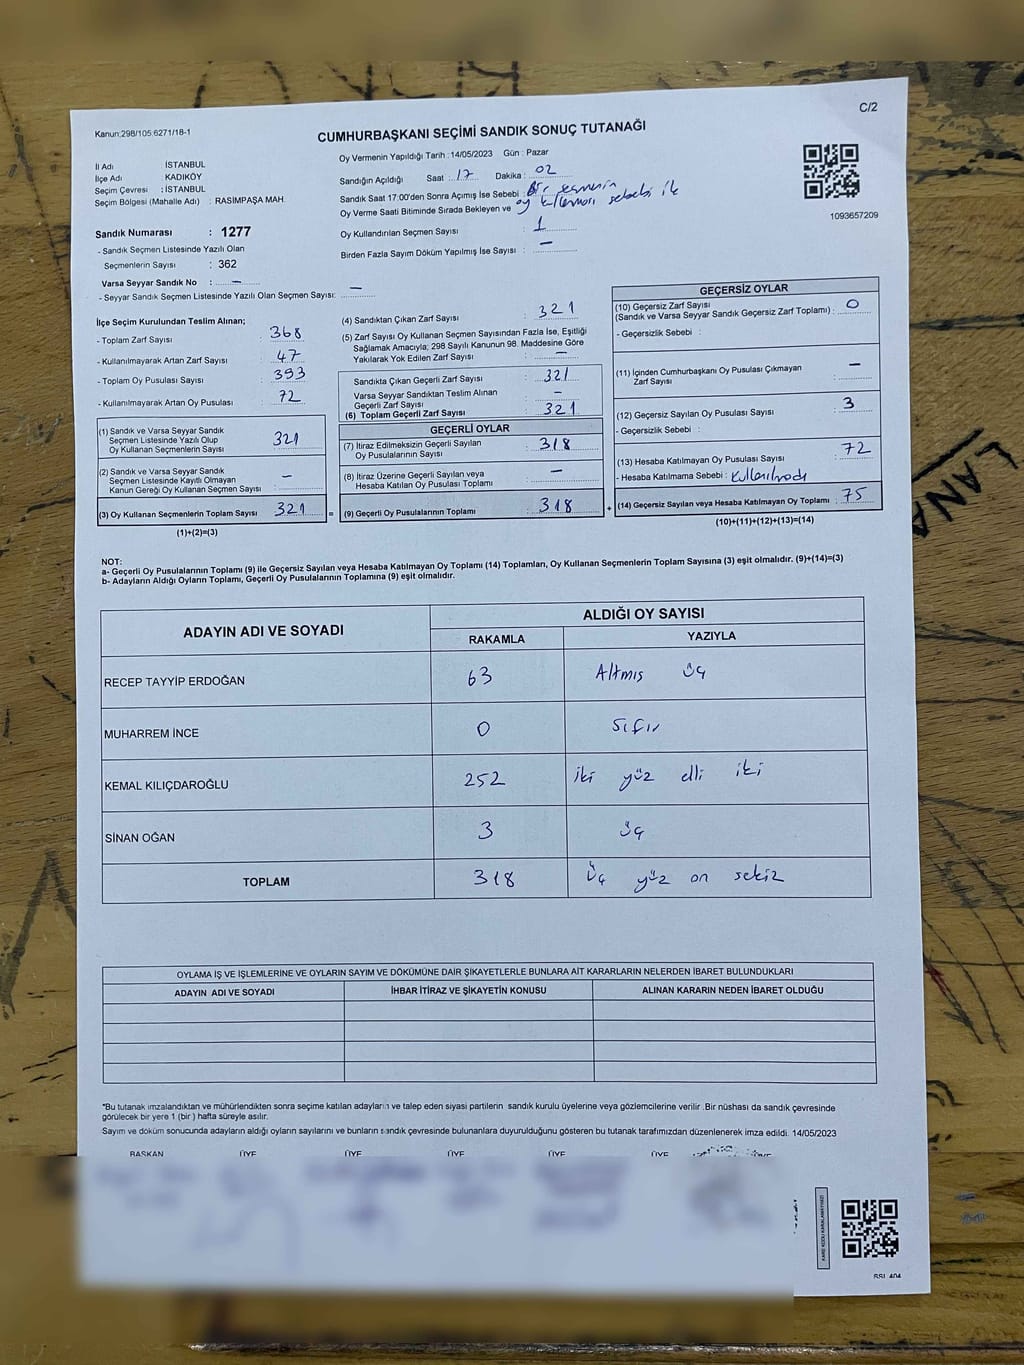 C/2
Kanun:298/105:6271/18-1
CUMHURBAŞKANI SEÇİMİ SANDIK SONUÇ TUTANAĞI
İl Adı : İSTANBUL
İlçe Adı : KADIKÖY
Seçim Çevresi : İSTANBUL
Seçim Bölgesi (Mahalle Adı) : RASİMPAŞA MAH.
Oy Vermenin Yapıldığı Tarih :14/05/2023 Gün : Pazar
Sandığın Açıldığı Saat : 17 Dakika : 02
Sandık Saat 17:00'den Sonra Açımış İse Sebebi : Bir seçmenin
oy kullanması sebebi ile
Oy Verme Saati Bitiminde Sırada Bekleyen ve
Oy Kullandırılan Seçmen Sayısı : 1
Birden Fazla Sayım Döküm Yapılmış İse Sayısı : —
1093657209
Sandık Numarası : 1277
- Sandık Seçmen Listesinde Yazılı Olan
Seçmenlerin Sayısı : 362
Varsa Seyyar Sandık No : —
- Seyyar Sandık Seçmen Listesinde Yazılı Olan Seçmen Sayısı: —
İlçe Seçim Kurulundan Teslim Alınan;
- Toplam Zarf Sayısı : 368
- Kullanılmayarak Artan Zarf Sayısı : 47
- Toplam Oy Pusulası Sayısı : 393
- Kullanılmayarak Artan Oy Pusulası : 72
(1) Sandık ve Varsa Seyyar Sandık
Seçmen Listesinde Yazılı Olup
Oy Kullanan Seçmenlerin Sayısı : 321
(2) Sandık ve Varsa Seyyar Sandık
Seçmen Listesinde Kayıtlı Olmayan
Kanun Gereği Oy Kullanan Seçmen Sayısı : —
(3) Oy Kullanan Seçmenlerin Toplam Sayısı : 321
(1)+(2)=(3)
(4) Sandıktan Çıkan Zarf Sayısı : 321
(5) Zarf Sayısı Oy Kullanan Seçmen Sayısından Fazla İse, Eşitliği
Sağlamak Amacıyla; 298 Sayılı Kanunun 98. Maddesine Göre
Yakılarak Yok Edilen Zarf Sayısı : —
Sandıkta Çıkan Geçerli Zarf Sayısı : 321
Varsa Seyyar Sandıktan Teslim Alınan
Geçerli Zarf Sayısı : —
(6) Toplam Geçerli Zarf Sayısı : 321
GEÇERLİ OYLAR
(7) İtiraz Edilmeksizin Geçerli Sayılan
Oy Pusulalarının Sayısı : 318
(8) İtiraz Üzerine Geçerli Sayılan veya
Hesaba Katılan Oy Pusulası Toplamı : —
= (9) Geçerli Oy Pusulalarının Toplamı : 318
GEÇERSİZ OYLAR
(10) Geçersiz Zarf Sayısı
(Sandık ve Varsa Seyyar Sandık Geçersiz Zarf Toplamı) : 0
- Geçersizlik Sebebi :
(11) İçinden Cumhurbaşkanı Oy Pusulası Çıkmayan
Zarf Sayısı : —
(12) Geçersiz Sayılan Oy Pusulası Sayısı : 3
- Geçersizlik Sebebi :
(13) Hesaba Katılmayan Oy Pusulası Sayısı : 72
- Hesaba Katılmama Sebebi : Kullanılmadı
+ (14) Geçersiz Sayılan veya Hesaba Katılmayan Oy Toplamı : 75
(10)+(11)+(12)+(13)=(14)
NOT:
a- Geçerli Oy Pusulalarının Toplamı (9) ile Geçersiz Sayılan veya Hesaba Katılmayan Oy Toplamı (14) Toplamları, Oy Kullanan Seçmenlerin Toplam Sayısına (3) eşit olmalıdır. (9)+(14)=(3)
b- Adayların Aldığı Oyların Toplamı, Geçerli Oy Pusulalarının Toplamına (9) eşit olmalıdır.
ADAYIN ADI VE SOYADI
ALDIĞI OY SAYISI
RAKAMLA YAZIYLA
RECEP TAYYİP ERDOĞAN 63 Altmış üç
MUHARREM İNCE 0 Sıfır
KEMAL KILIÇDAROĞLU 252 iki yüz elli iki
SİNAN OĞAN 3 üç
TOPLAM 318 Üç yüz on sekiz
OYLAMA İŞ VE İŞLEMLERİNE VE OYLARIN SAYIM VE DÖKÜMÜNE DAİR ŞİKAYETLERLE BUNLARA AİT KARARLARIN NELERDEN İBARET BULUNDUKLARI
ADAYIN ADI VE SOYADI İHBAR İTİRAZ VE ŞİKAYETİN KONUSU ALINAN KARARIN NEDEN İBARET OLDUĞU
*Bu tutanak imzalandıktan ve mühürlendikten sonra seçime katılan adayların ve talep eden siyasi partilerin sandık kurulu üyelerine veya gözlemcilerine verilir .Bir nüshası da sandık çevresinde
görülecek bir yere 1 (bir ) hafta süreyle asılır.
Sayım ve döküm sonucunda adayların aldığı oyların sayılarını ve bunların sandık çevresinde bulunanlara duyurulduğunu gösteren bu tutanak tarafımızdan düzenlenerek imza edildi. 14/05/2023
BAŞKAN ÜYE ÜYE ÜYE ÜYE ÜYE
LANA